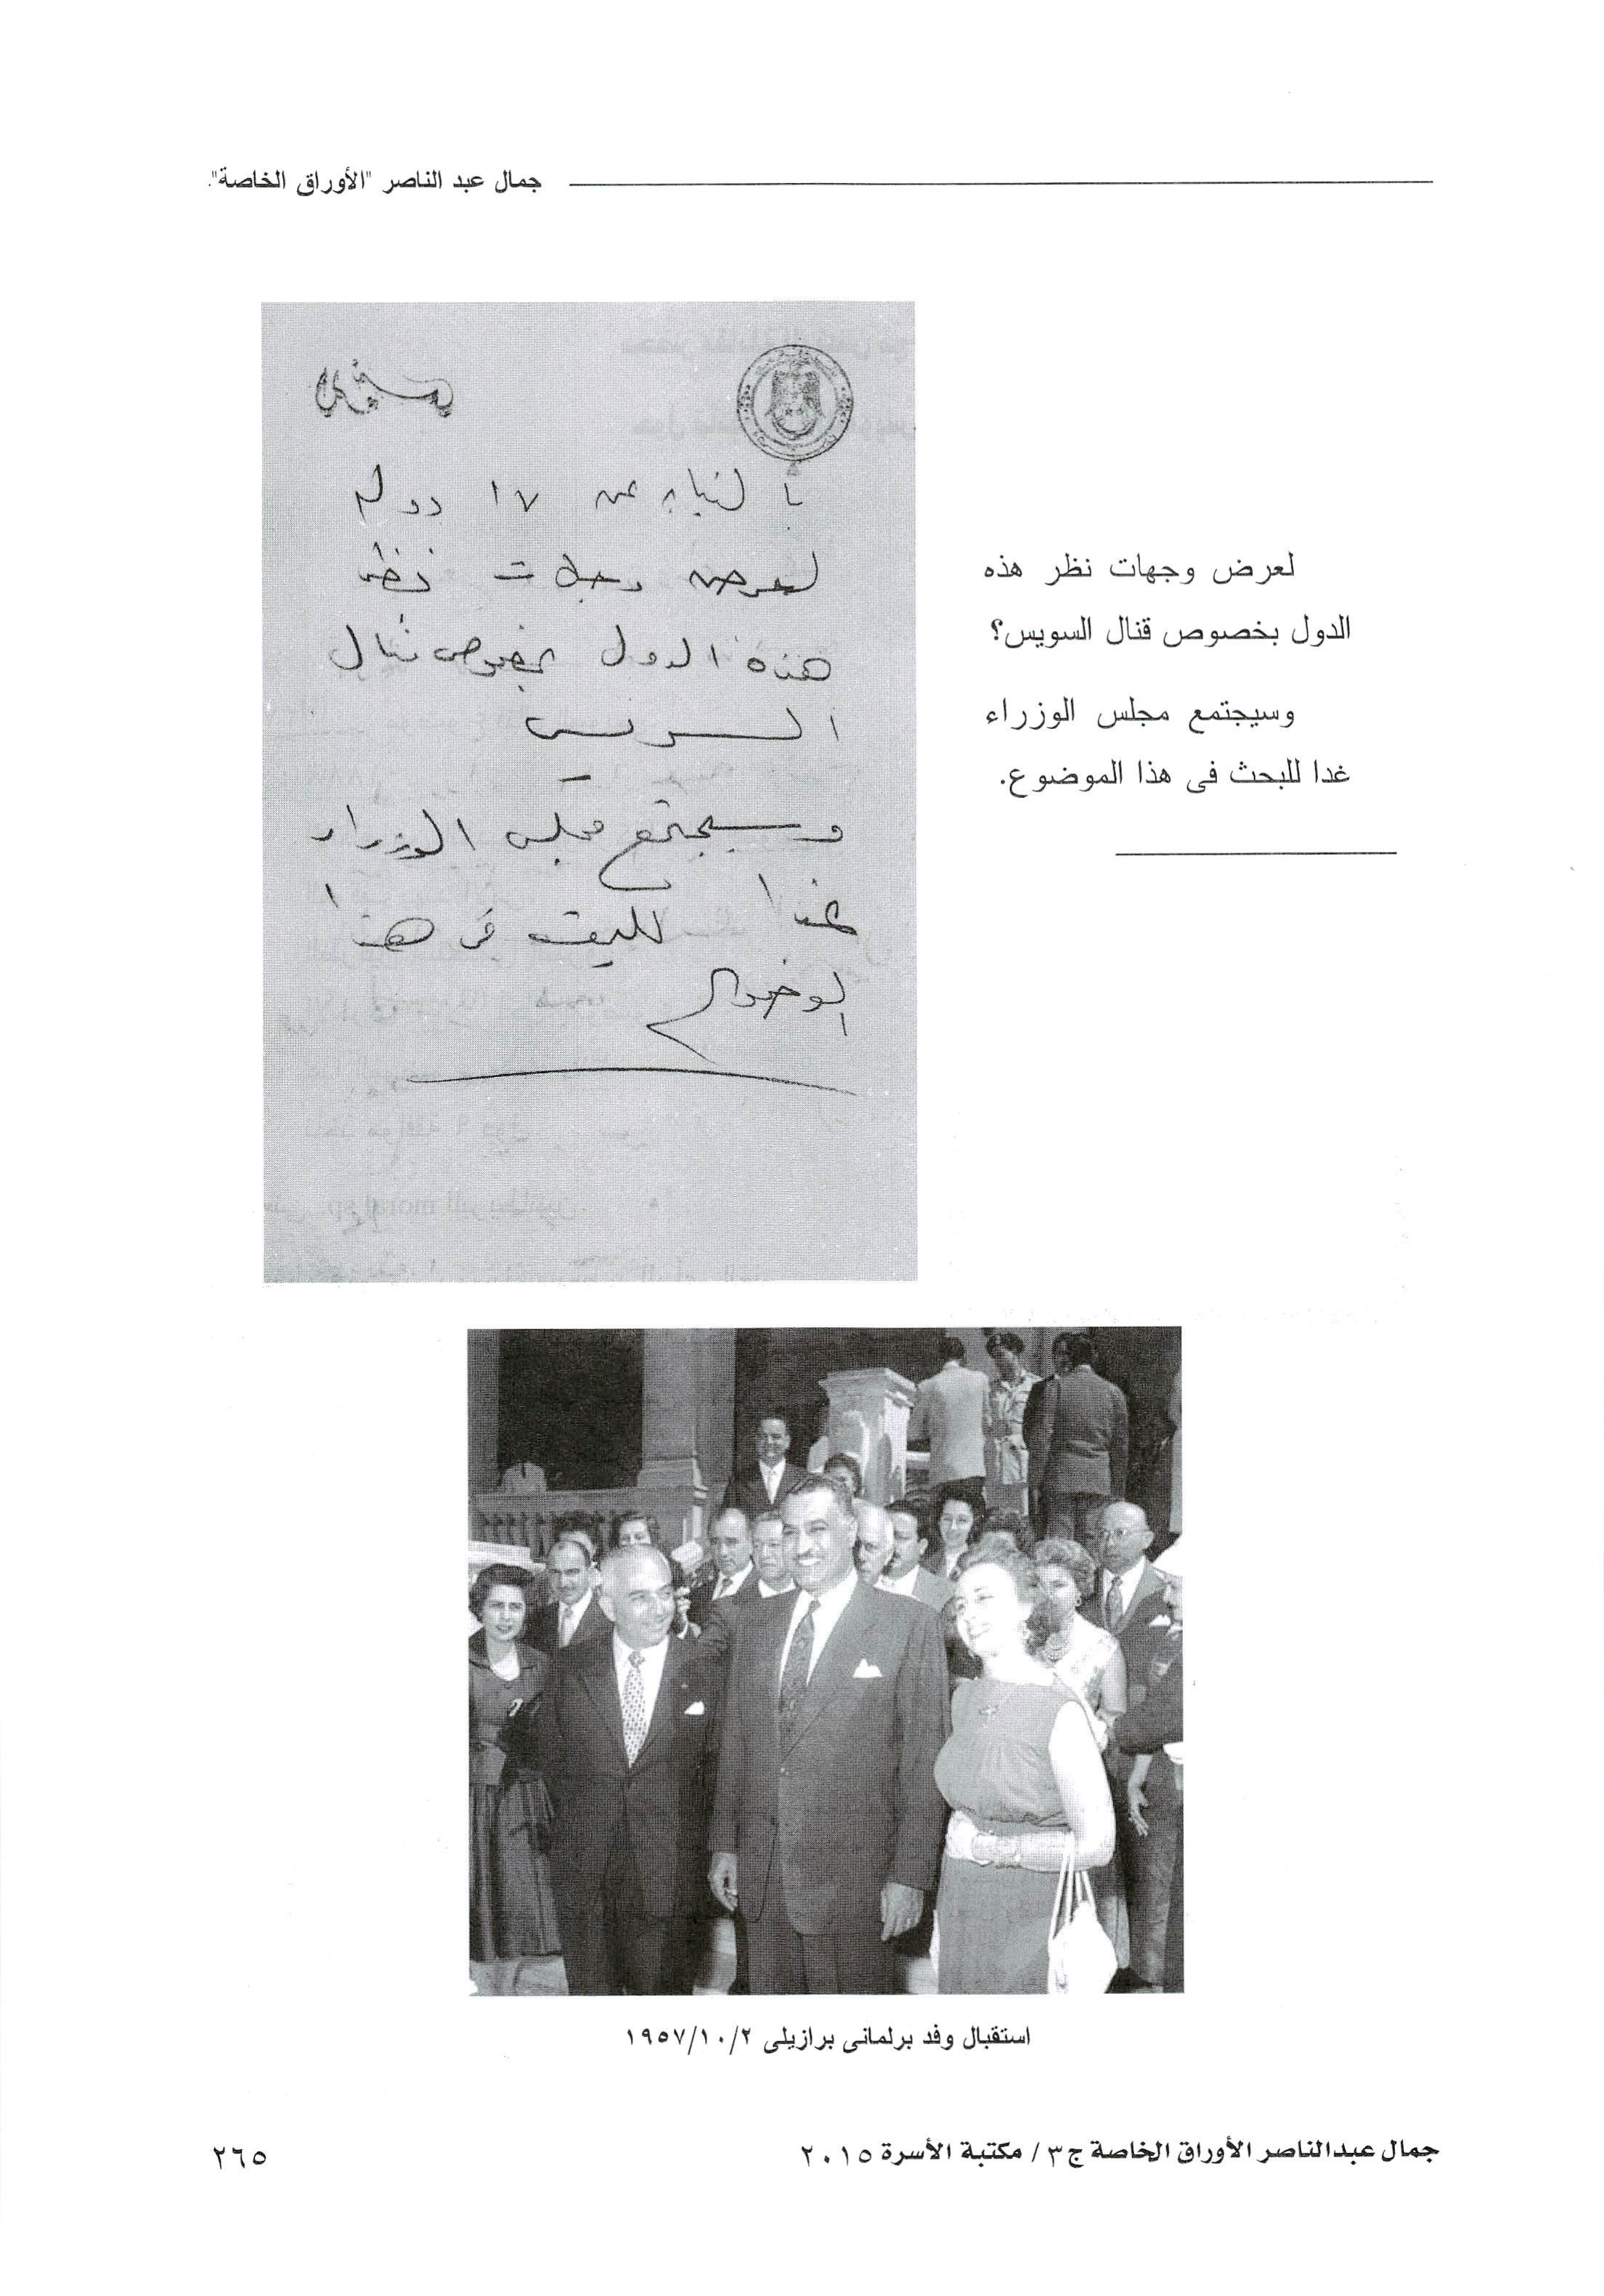 جمال عبد الناصر "الأوراق الخاصة".
بالنيابه عن ١٧ دوله
لعرض وجهات نظر
هذه الدول بخصوص قنال
السويس
وسيجتمع مجلس الوزراء
غدا للبحث فى هذا
الموضوع
لعرض وجهات نظر هذه
الدول بخصوص قنال السويس؟
وسيجتمع مجلس الوزراء
غدا للبحث فى هذا الموضوع.
استقبال وفد برلمانى برازيلى ١٩٥٧/١٠/٢
جمال عبدالناصر الأوراق الخاصة ج٣ / مكتبة الأسرة ٢٠١٥
٢٦٥